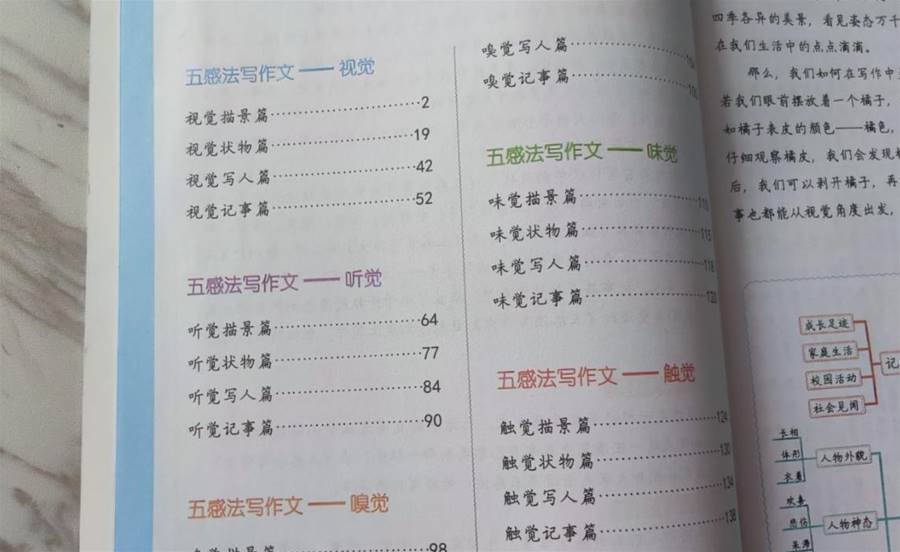 五感法写作文——视觉
视觉描景篇 2
视觉状物篇 19
视觉写人篇 42
视觉记事篇 52
五感法写作文——听觉
听觉描景篇 64
听觉状物篇 77
听觉写人篇 84
听觉记事篇 90
五感法写作文——嗅觉
98
嗅觉写人篇
嗅觉记事篇
五感法写作文——味觉
味觉描景篇
味觉状物篇 115
味觉写人篇 118
味觉记事篇 120
五感法写作文——触觉
触觉描景篇 124
触觉状物篇 130
触觉写人篇 134
触觉记事篇 138
四季各异的美景，看见姿态万千
在我们生活中的点点滴滴。
那么，我们如何在写作中
若我们眼前摆放着一个橘子，
如橘子表皮的颜色——橘色，
仔细观察橘皮，我们会发现
后，我们可以剥开橘子，再
事也都能从视觉角度出发，
成长足迹
家庭生活
校园活动
社会见闻
记
长相
体形
衣着
人物外貌
欢喜
悲伤
人物神态